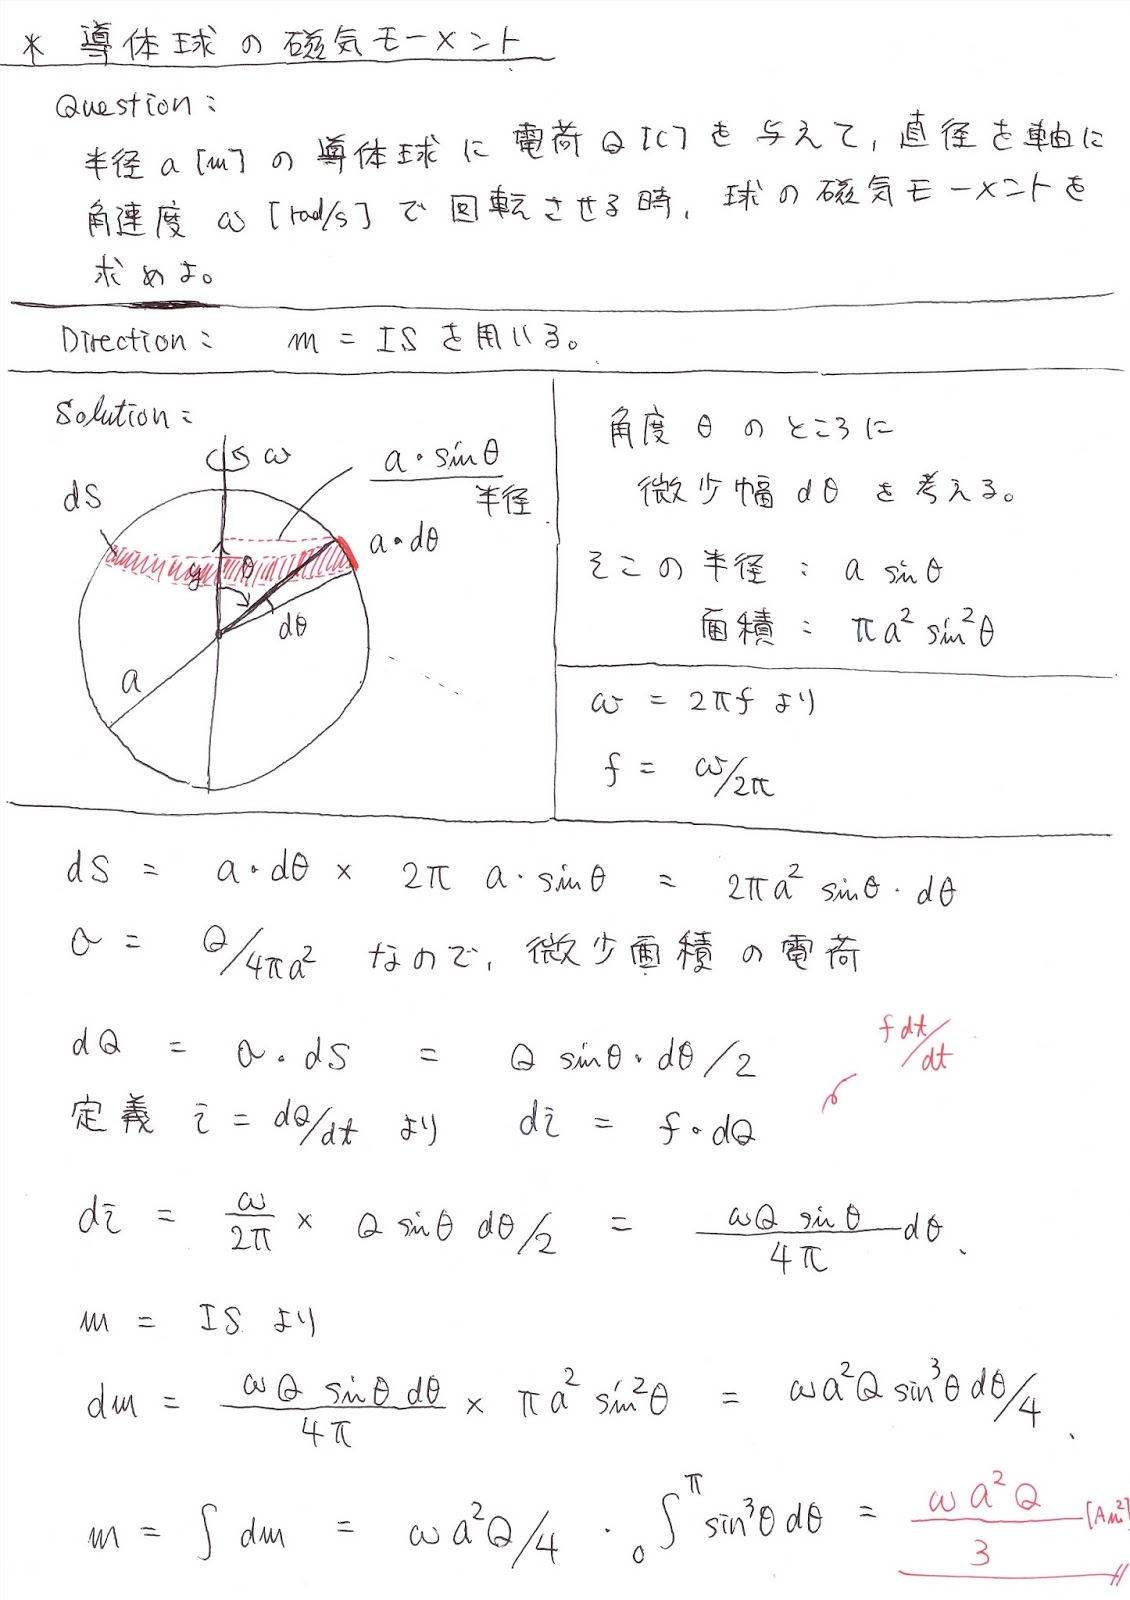 * 導体球の磁気モーメント
Question:
半径a[m]の導体球に電荷Q[C]を与えて,直径を軸に
角速度ω[rad/s]で回転させる時,球の磁気モーメントを
求めよ。
Direction: m = IS を用いる。
Solution:
ω
a・sinθ
半径
dS
a・dθ
θ
dθ
a
角度θのところに
微少幅dθを考える。
そこの半径: a sinθ
面積: πa² sin²θ
ω = 2πf より
f = ω/2π
dS = a・dθ × 2π a・sinθ = 2πa² sinθ・dθ
σ = Q/4πa² なので,微少面積の電荷
dQ = σ・dS = Q sinθ・dθ/2
f dt/dt
定義 i = dQ/dt より di = f・dQ
di = ω/2π × Q sinθ dθ/2 = ωQ sinθ/4π dθ
m = IS より
dm = ωQ sinθ dθ/4π × πa² sin²θ = ωa²Q sin³θ dθ/4
m = ∫dm = ωa²Q/4 ・ ₀∫^π sin³θ dθ = ωa²Q/3 [Am²]